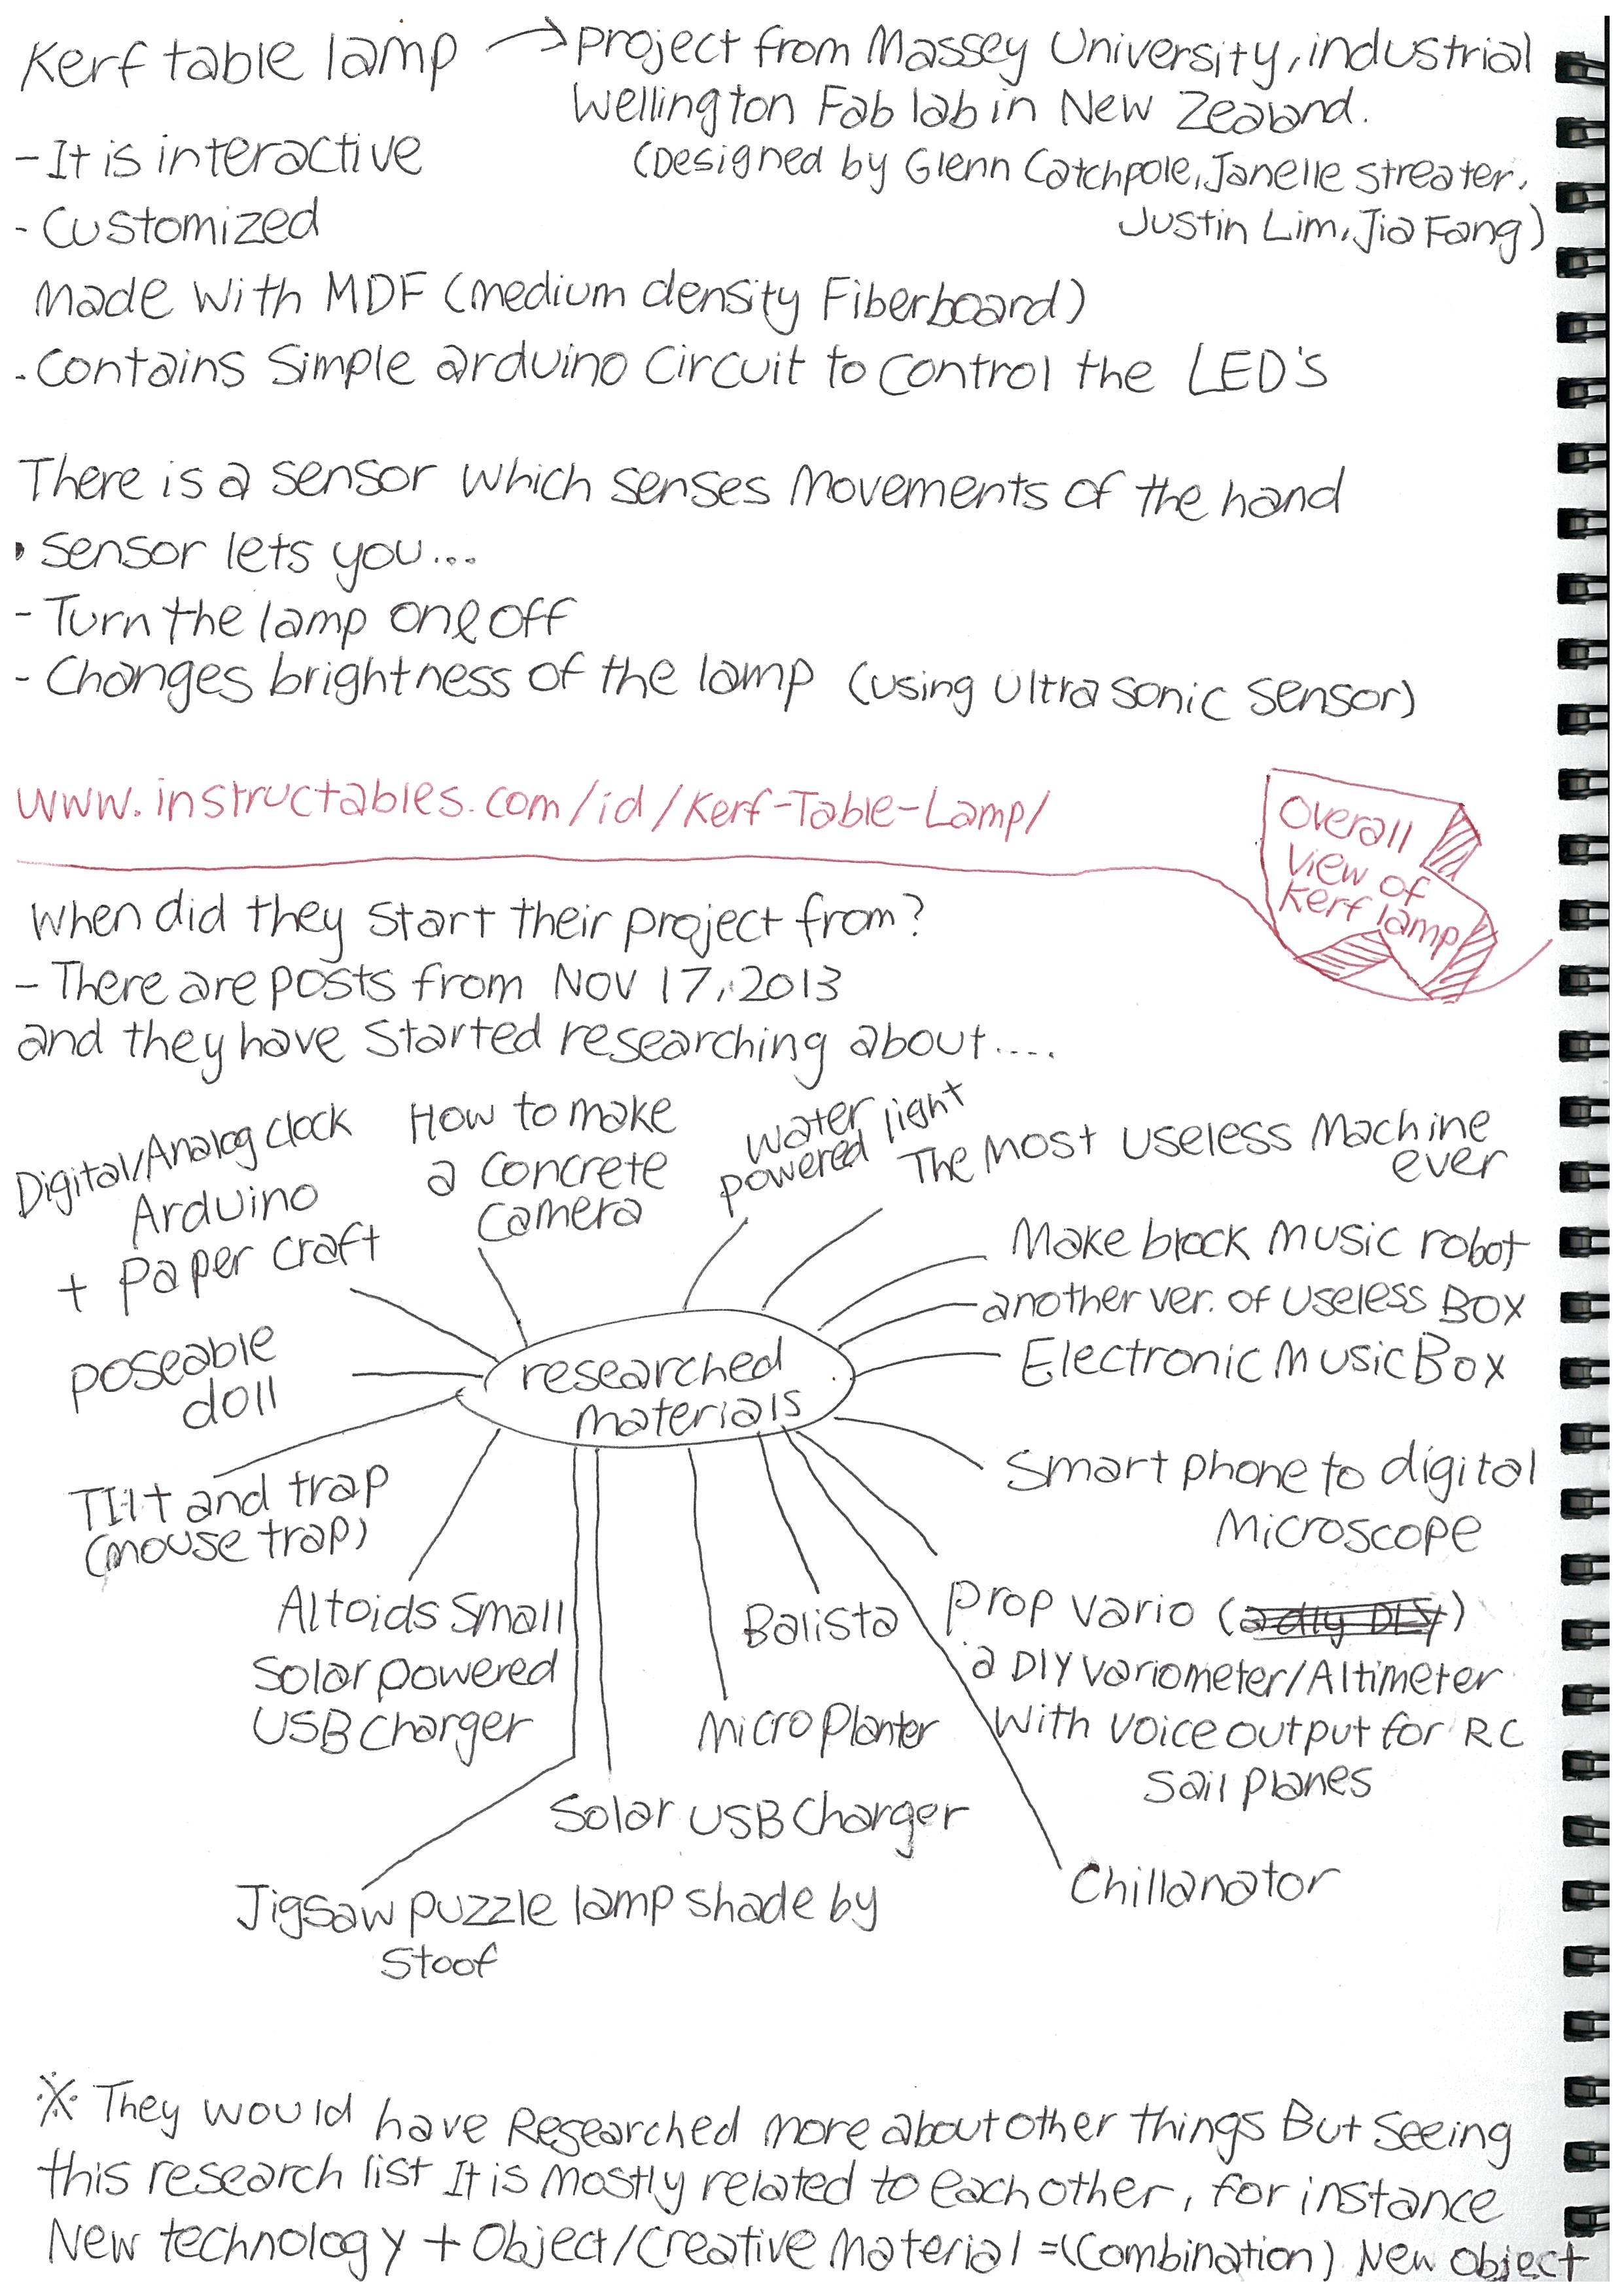 Kerf table lamp → Project from Massey University, industrial
Wellington Fab lab in New Zealand.
(Designed by Glenn Catchpole, Janelle Streater,
Justin Lim, Jia Fang)
- It is interactive
- Customized
made with MDF (medium density Fiberboard)
- Contains simple arduino circuit to control the LED's
There is a sensor which senses movements of the hand
• Sensor lets you...
- Turn the lamp on & off
- Changes brightness of the lamp (using ultra sonic sensor)
www.instructables.com/id/Kerf-Table-Lamp/
Overall
view of
Kerf lamp
When did they start their project from?
- There are posts from Nov 17, 2013
and they have started researching about....
Digital/Analog clock
Arduino
+ Paper craft
How to make
a concrete
camera
water
powered light
The Most Useless Machine
ever
Make block music robot
another ver. of useless Box
Electronic music Box
Smart phone to digital
Microscope
Prop vario (
)
a DIY variometer/Altimeter
with voice output for RC
Sail planes
Chillanator
Balista
Micro Planter
Solar USB Charger
Jigsaw puzzle lamp shade by
Stoof
Altoids Small
Solar powered
USB Charger
Tilt and trap
(mouse trap)
poseable
doll
researched
materials
※ They would have Researched more about other things But Seeing
this research list It is mostly related to each other, for instance
New technology + Object/Creative Material = (Combination) New object